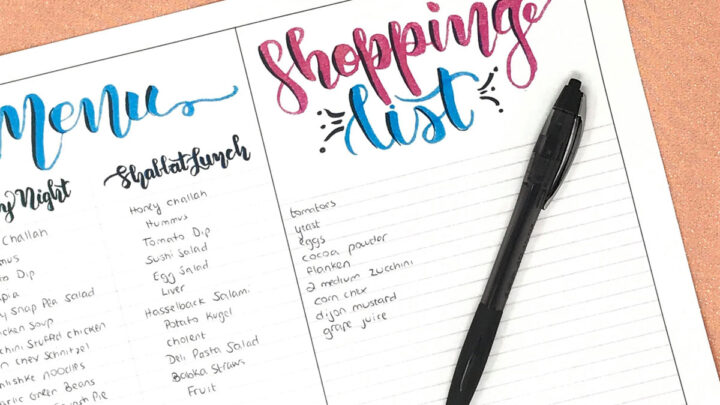 Menu
y Night
Challah
mus
o Dip
pia
y Snap Pea Salad
icken Soup
chini Stuffed Chicken
n Chex Schnitzel
nlishke noodles
arlic Green Beans
Pie
Shabbat Lunch
Honey challah
Hummus
Tomato Dip
Sushi Salad
Egg Salad
Liver
Hasselback Salami
Potato Kugel
cholent
Deli Pasta Salad
Babka Straws
Fruit
Shopping
list
tomatoes
yeast
eggs
cocoa powder
flanken
2 medium zucchini
corn chex
dijon mustard
grape juice